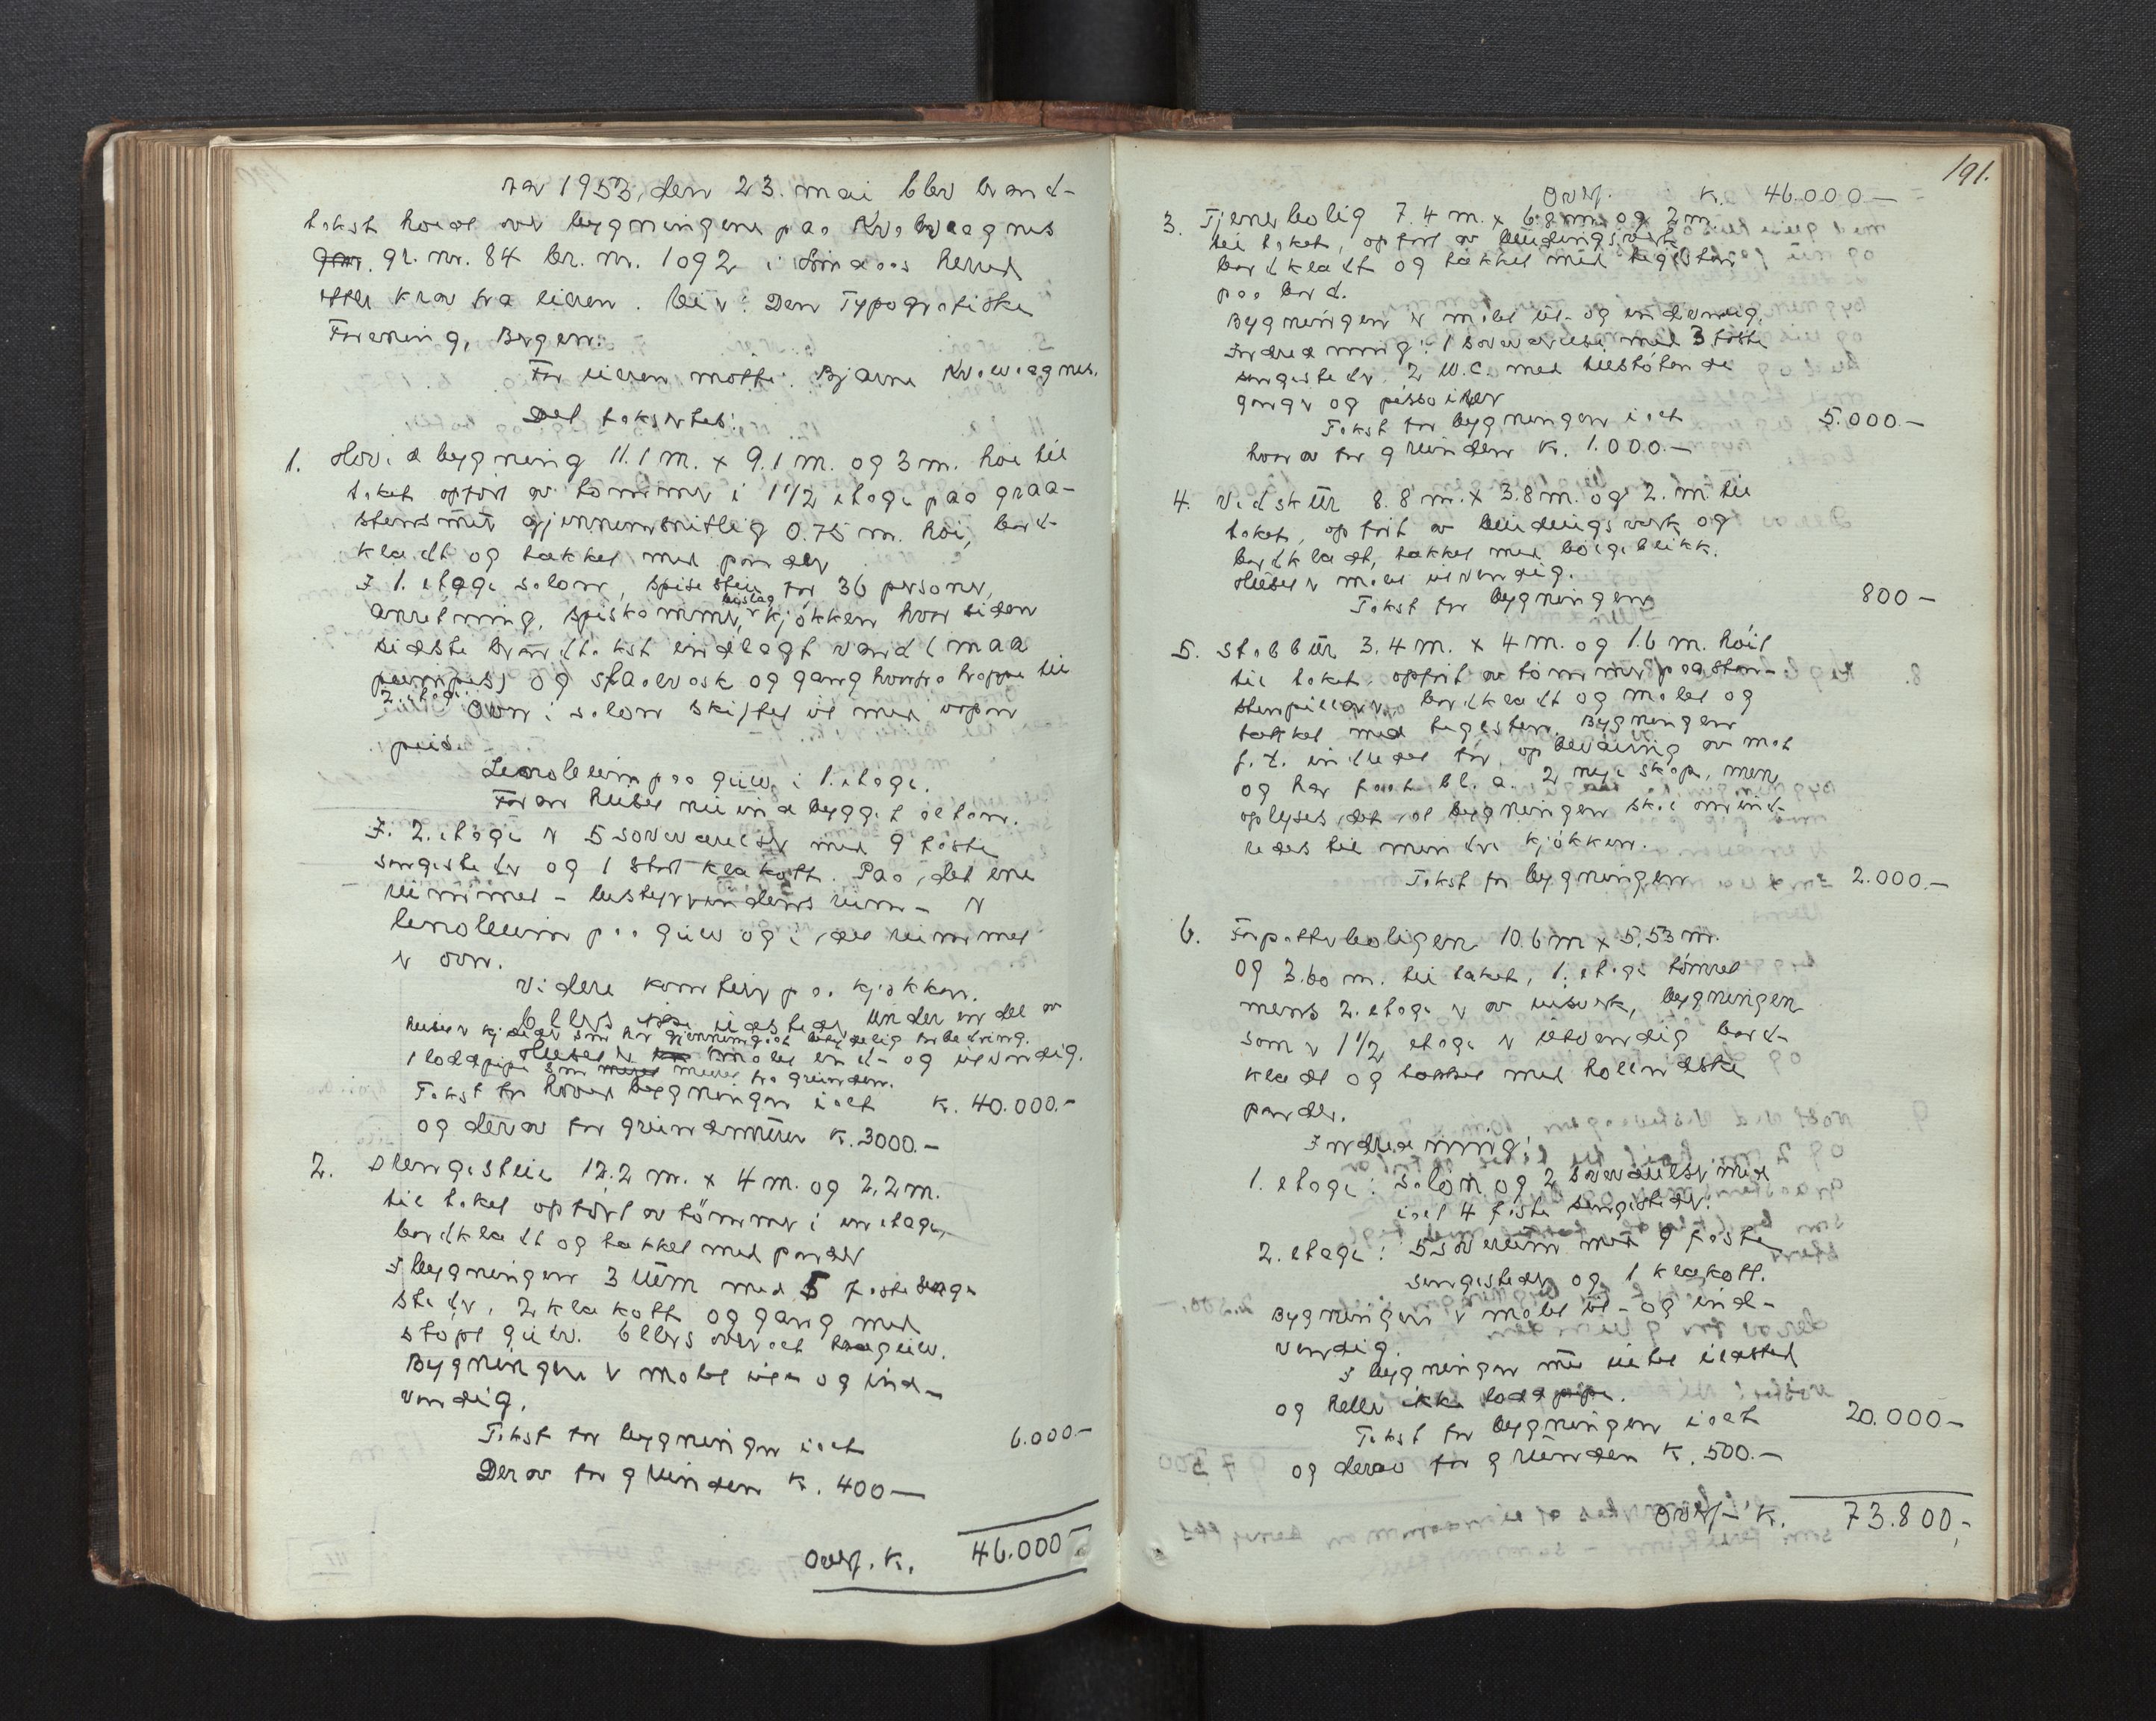 Aar 1953, den 23. mai blev brand-
takst holdt over bygningene paa Kvalvaagnes
gnr. gr. nr. 84 br. nr. 1 og 2 i Lindaas herred
etter krav fra eieren. Den Typografiske
Forening, Bergen.
For eieren møtte: Bjarne Kvalvaagnes.
Det takstertes:
1. Hovedbygning 11.1 m. x 9.1 m. og 3 m. høi til
taket opført av tømmer i 1 1/2 etage paa graa-
stensmur gjennemsnitlig 0.75 m. høi, bord-
klædt og tækket med pander
I 1. etage salon, spisestue for 36 personer,
anretning, spiskammer, bislag, kjøkken hvor siden
sidste brandtakst indlagt vand (maa
pumpes) og slaovask og gang hvorfra trappe til
2. etage. Ovn i salon skiftet ut med open
peis.
Linoleum paa gulv i 1. etage.
Foran huset nu indbygget altan.
I. 2. etage er 5 soveværelser med 9 faste
sengesteder og 1 stort klækott. Paa det ene
rummet - bestyrerindens rum - er
linoleum paa gulv og i det rummet
er ovn.
Videre komfyr paa kjøkken.
Ellers intet ildsted. Under en del av
huset er kjelder som har gjennemgaat betydelig forbedring.
Huset er malet ind- og utvendig.
1 loddpipe som muret fra grunden.
Takst for hovedbygningen i alt K. 40.000.-
og derav for grundmuren K. 3000.-
2. Slengestue 12.2 m. x 4 m. og 2,2 m.
til taket opført av tømmer i en etage,
bordklædt og tækket med pander
I bygningen 3 rum med 5 faste senge
steder, 2 klækott og gang med
støpt gulv. Ellers overalt trægulv.
Bygningen er malet ut- og ind-
vendig.
Takst for bygningen i alt 6.000.-
Derav for grunden K. 400-
Overf. K. 46.000
191.
Overf. K. 46.000-
3. Tjenerbolig 7.4 m. x 6.8 m. og 2 m.
til taket, opført av bindingsverk
bordklædt og tækket med teglsten
paa bord.
Bygningen er malet ut- og indvendig.
Indredning: 1 soveværelse med 3 faste
sengesteder. 2 W.C. med tilstøtende
ganger og pissoirer
Takst for bygningen i alt 5.000.-
hvorav for grunden K. 1.000.-
4. Vedskur 8.8 m. x 3.8 m. og 2. m. til
taket, opført av bindingsverk og
bordklædt, tækket med bølgeblikk.
Huset er malt utvendig.
Takst for bygningen 800-
5. Stabbur 3.4 m. x 4 m. og 1.6 m. høit
til taket, opført av tømmer paa sten-
stenpillarer, bordklædt og malet og
tækket med teglsten. Bygningen
f. t. indredet for opbevaring av mat
og har faat bl. a. 2 nye skap, men
oplyses det at bygningen skal omind-
redes til mindre kjøkken.
Takst for bygningen 2.000.-
6. Forpakterboligen 10.6 m x 5,53 m.
og 3.60 m. til taket, 1. etage tømret
mens 2. etage er av reisverk, bygningen
som er 1 1/2 etage er utvendig bord-
klædt og tækket med hollandske
pander.
Indredning:
1. etage: salon og 2 soveværelser med
i alt 4 faste sengesteder.
2. etage: 5 soverum med 9 faste
sengesteder og 1 klækott.
Bygningen er malet ut- og ind-
vendig.
I bygningen nu intet ildsted
og heller ikke loddpipe.
Takst for bygningen i alt 20.000-
og derav for grunden K. 500.-
Overf. K. 73.800,-